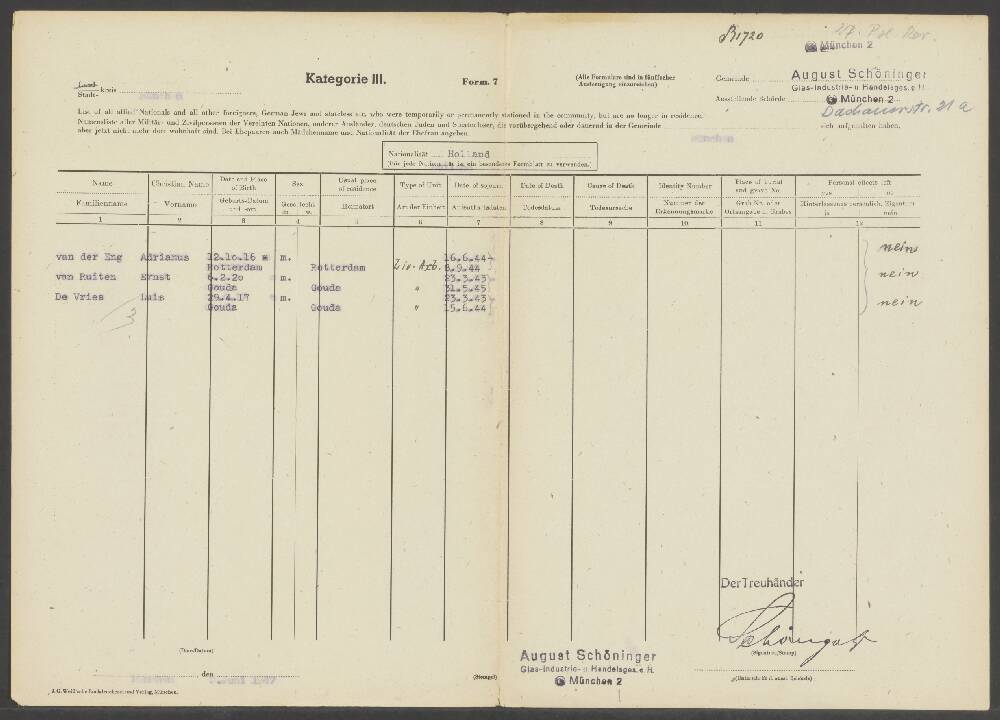 R1720
27. Pol. Rev.
München 2
Land-
Stadt- kreis
Kategorie III.
Form. 7
(Alle Formulare sind in fünffacher
Ausfertigung einzureichen)
Gemeinde
August Schöninger
Glas-Industrie- u Handelsges. e H.
Ausstellende Behörde
München 2
Dachauerstr. 21 a
List of all allied Nationals and all other foreigners, German Jews and stateless etc. who were temporarily or permanently stationed in the community, but are no longer in residence.
Namensliste aller Militär- und Zivilpersonen der Vereinten Nationen, anderer Ausländer, deutschen Juden und Staatenloser, die vorübergehend oder dauernd in der Gemeinde sich aufgehalten haben,
aber jetzt nicht mehr dort wohnhaft sind. Bei Ehepaaren auch Mädchenname und Nationalität der Ehefrau angeben.
Nationalität Holland
(Für jede Nationalität ist ein besonderes Formblatt zu verwenden.)
Name Christian Name Date and Place of Birth Sex Usual place of residence Type of Unit Date of sojourn Date of Death Cause of Death Identity Number Place of burial and grave No. Personal effects left yes no
Familienname Vorname Geburts-Datum und -ort Geschlecht m. w. Heimatort Art der Einheit Aufenthaltsdaten Todesdatum Todesursache Nummer der Erkennungsmarke Grab Nr. oder Ortsangabe d. Grabes Hinterlassenes persönlich. Eigentum ja nein
1 2 3 4 5 6 7 8 9 10 11 12
van der Eng Adrianus 12.10.16 m. 16.6.44- nein
Rotterdam Rotterdam Ziv. Arb. 8.9.44
van Ruiten Ernst 6.2.20 m. 23.3.43- nein
Gouda Gouda " 31.5.45
De Vries Luis 29.4.17 m. 23.3.43- nein
Gouda Gouda " 15.6.44
3
Der Treuhänder
Schöngast
(Date/Datum)
(Signature/Stamp)
August Schöninger
Glas-Industrie- u Handelsges. e. H.
München 2
, den
(Stempel)
(Unterschrift d. ausst. Behörde)
J. G. Weiß'sche Buchdruckerei und Verlag, München.